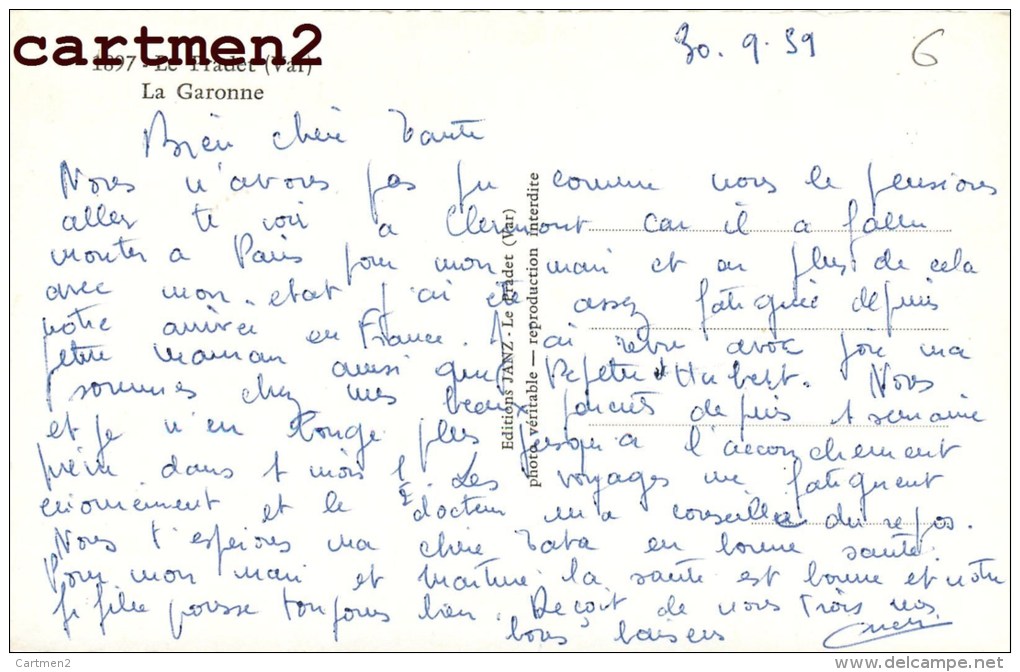 cartmen2
1897 - Le Pradet (Var)
La Garonne
30.9.59
6
Bien chère Tante
Nous n'avons pas pu comme nous le pensions
aller te voir a Clermont car il a fallu
monter a Paris pour mon mari et en plus de cela
avec mon état j'ai été assez fatiguée depuis
notre arrivée en France. J'ai revu avec joie ma
petite maman ainsi que Pépète et Hubert. Nous
sommes chez mes beaux parents depuis 1 semaine
et je n'en bouge plus jusqu'a l'accouchement
prévu dans 1 mois ! Les voyages me fatiguent
énormément et le docteur m'a conseillée du repos.
Nous t'espérons ma chère Tata en bonne santé.
Pour mon mari et la santé est bonne et notre
fifille pousse toujours bien. Reçoit de nous trois nos
bons baisers
Editions JANZ - Le Pradet (Var)
photo véritable — reproduction interdite
Cartmen2
www.delcampe.net